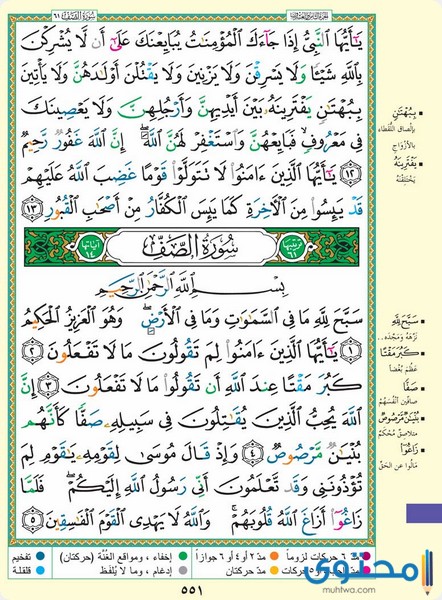 سورة الصف ٦١
الجزء الثامن والعشرون
يَـٰٓأَيُّهَا ٱلنَّبِىُّ إِذَا جَآءَكَ ٱلْمُؤْمِنَـٰتُ يُبَايِعْنَكَ عَلَىٰٓ أَن لَّا يُشْرِكْنَ
بِٱللَّهِ شَيْـًٔا وَلَا يَسْرِقْنَ وَلَا يَزْنِينَ وَلَا يَقْتُلْنَ أَوْلَـٰدَهُنَّ وَلَا يَأْتِينَ
بِبُهْتَـٰنٍ يَفْتَرِينَهُۥ بَيْنَ أَيْدِيهِنَّ وَأَرْجُلِهِنَّ وَلَا يَعْصِينَكَ
فِى مَعْرُوفٍ فَبَايِعْهُنَّ وَٱسْتَغْفِرْ لَهُنَّ ٱللَّهَ إِنَّ ٱللَّهَ غَفُورٌ رَّحِيمٌ
١٢ يَـٰٓأَيُّهَا ٱلَّذِينَ ءَامَنُوا۟ لَا تَتَوَلَّوْا۟ قَوْمًا غَضِبَ ٱللَّهُ عَلَيْهِمْ
قَدْ يَئِسُوا۟ مِنَ ٱلْـَٔاخِرَةِ كَمَا يَئِسَ ٱلْكُفَّارُ مِنْ أَصْحَـٰبِ ٱلْقُبُورِ ١٣
ترتيبها ٦١ سُورَةُ الصَّفِّ آياتها ١٤
بِسْمِ ٱللَّهِ ٱلرَّحْمَـٰنِ ٱلرَّحِيمِ
سَبَّحَ لِلَّهِ مَا فِى ٱلسَّمَـٰوَٰتِ وَمَا فِى ٱلْأَرْضِ وَهُوَ ٱلْعَزِيزُ ٱلْحَكِيمُ
١ يَـٰٓأَيُّهَا ٱلَّذِينَ ءَامَنُوا۟ لِمَ تَقُولُونَ مَا لَا تَفْعَلُونَ ٢
كَبُرَ مَقْتًا عِندَ ٱللَّهِ أَن تَقُولُوا۟ مَا لَا تَفْعَلُونَ ٣ إِنَّ
ٱللَّهَ يُحِبُّ ٱلَّذِينَ يُقَـٰتِلُونَ فِى سَبِيلِهِۦ صَفًّا كَأَنَّهُم
بُنْيَـٰنٌ مَّرْصُوصٌ ٤ وَإِذْ قَالَ مُوسَىٰ لِقَوْمِهِۦ يَـٰقَوْمِ لِمَ
تُؤْذُونَنِى وَقَد تَّعْلَمُونَ أَنِّى رَسُولُ ٱللَّهِ إِلَيْكُمْ فَلَمَّا
زَاغُوٓا۟ أَزَاغَ ٱللَّهُ قُلُوبَهُمْ وَٱللَّهُ لَا يَهْدِى ٱلْقَوْمَ ٱلْفَـٰسِقِينَ ٥
بِبُهْتَـٰنٍ
بإلصاق اللقطاء
بالأزواج
يَفْتَرِينَهُ
يختلقنه
سَبَّحَ لِلَّهِ
نزّهه ومجّده..
كَبُرَ مَقْتًا
عظم بغضا
صَفًّا
صافّين أنفسهم
بُنْيَـٰنٌ مَّرْصُوصٌ
متلاصق محكم
زَاغُوٓا۟
مالوا عن الحق
مدّ ٦ حركات لزوماً مدّ ٢ أو ٤ أو ٦ جوازاً إخفاء، ومواقع الغُنَّة (حركتان) تفخيم
حركات مدّ حركتان إدغام، وما لا يُلفَظ قلقلة
٥٥١
محتوى
muhtwa.com